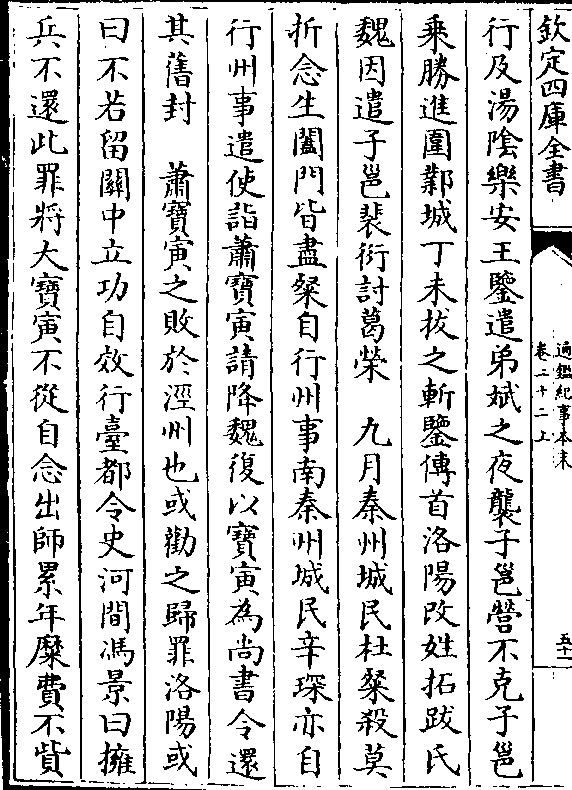 欽定四庫全書
通鑑紀事本末
卷二十二上
五十一
行及湯隂樂安王鑒遣弟斌之夜襲子邕營不克子邕
乘勝進圍鄴城丁未拔之斬鑒傳首洛陽改姓拓跋氏
魏因遣子邕裴衍討葛榮　九月秦州城民杜粲殺莫
折念生闔門皆盡粲自行州事南秦州城民辛琛亦自
行州事遣使詣蕭寶寅請降魏復以寶寅為尚書令還
其舊封　蕭寶寅之敗於涇州也或勸之歸罪洛陽或
曰不若留關中立功自效行臺都令史河間馮景曰擁
兵不還此罪將大寶寅不從自念出師累年糜費不貲